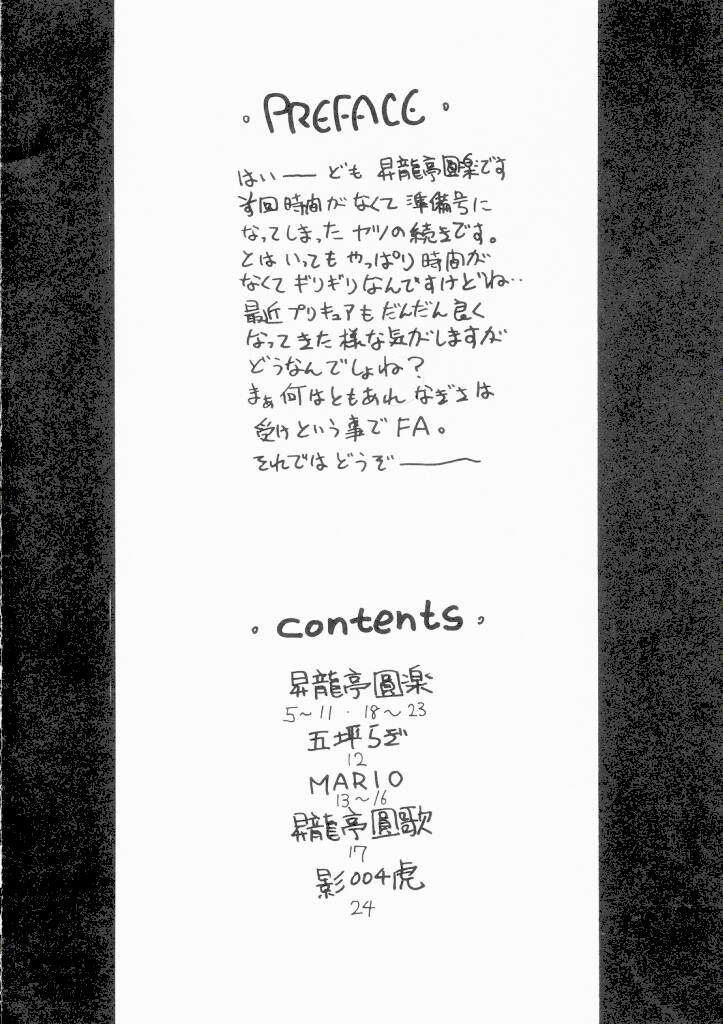 ・PREFACE・
はい── ども 昇龍亭圓楽です
前回時間がなくて 準備号に
なってしまった ヤツの続きです。
とは いっても やっぱり 時間が
なくて ギリギリなんですけどね‥
最近 プリキュアも だんだん 良く
なって きた 様な気がしますが
どうなんでしょね?
まぁ 何はともあれ なぎさは
受け という事で FA。
それでは どうぞ───
・contents・
昇龍亭圓楽
5~11 · 18~23
五坪らぎ
12
MARIO
13~16
昇龍亭圓歌
17
影004虎
24